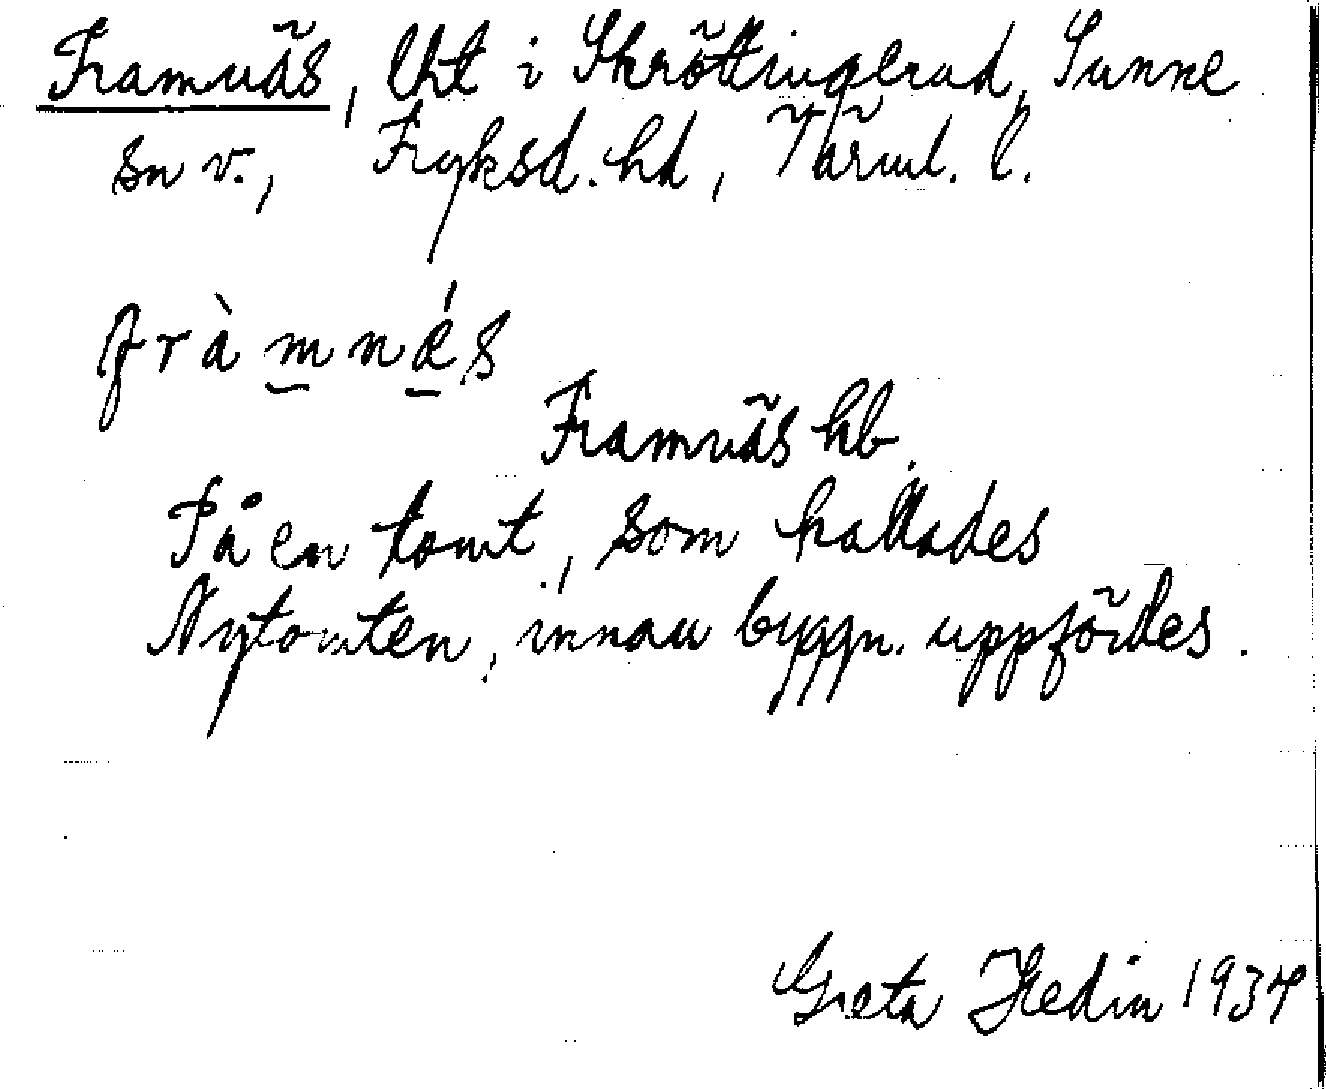 Framnäs, lht i Skröttingerud, Sunne
sn v., Fryksd. hd, Värml. l.
fràmnés
Framnäs hb.
På en tomt, som kallades
Nytomten, innan byggn. uppfördes.
Greta Hedin 1934